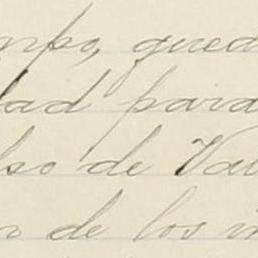 mpo, qued
dad para
lso de Val
n de los in